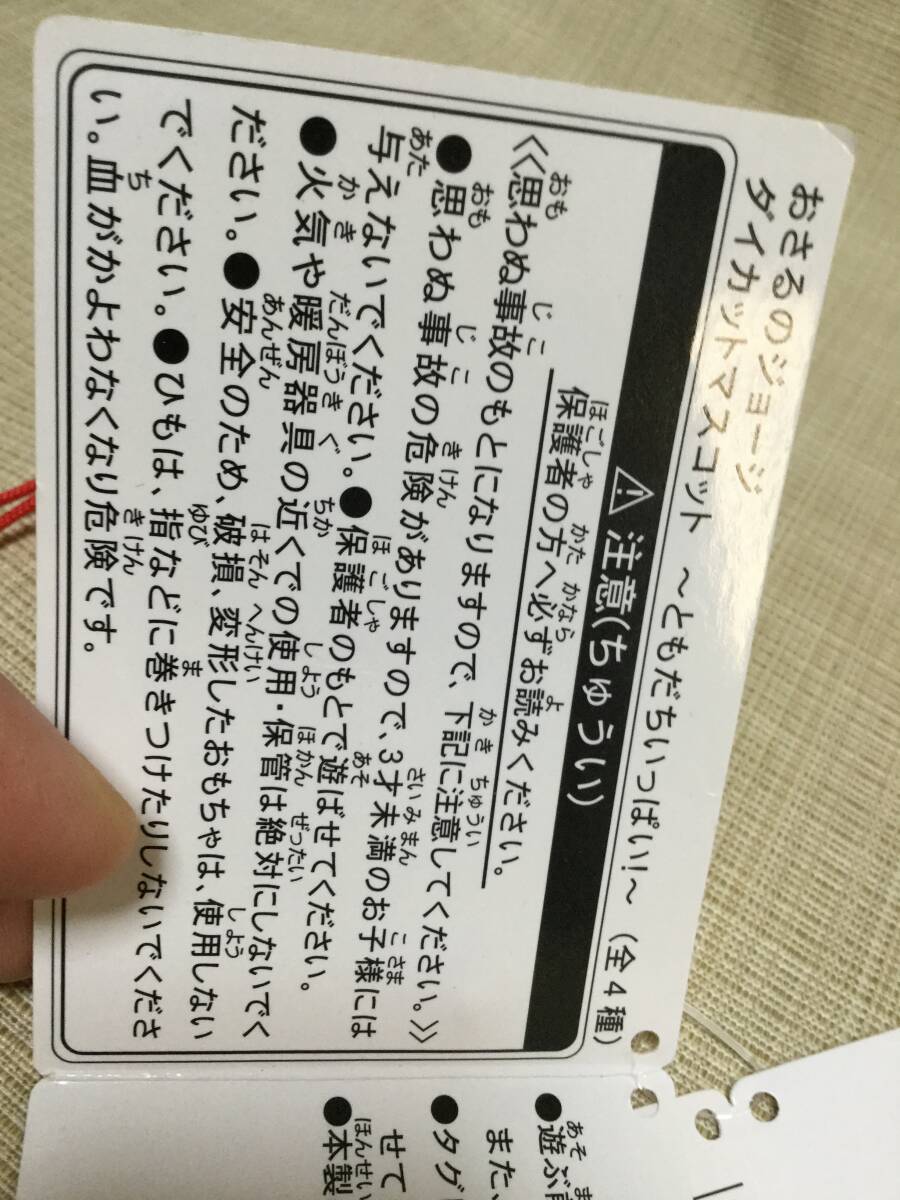 おさるのジョージ
ダイカットマスコット ~ともだちいっぱい!~(全4種)
⚠注意(ちゅうい)
保護者の方へ必ずお読みください。
《思わぬ事故のもとになりますので、下記に注意してください。》
●思わぬ事故の危険がありますので、3才未満のお子様には
与えないでください。●保護者のもとで遊ばせてください。
●火気や暖房器具の近くでの使用・保管は絶対にしないでく
ださい。●安全のため、破損、変形したおもちゃは、使用しない
でください。●ひもは、指などに巻きつけたりしないでくださ
い。血がかよわなくなり危険です。
●遊ぶ
また、
●タグ
せて
●本製